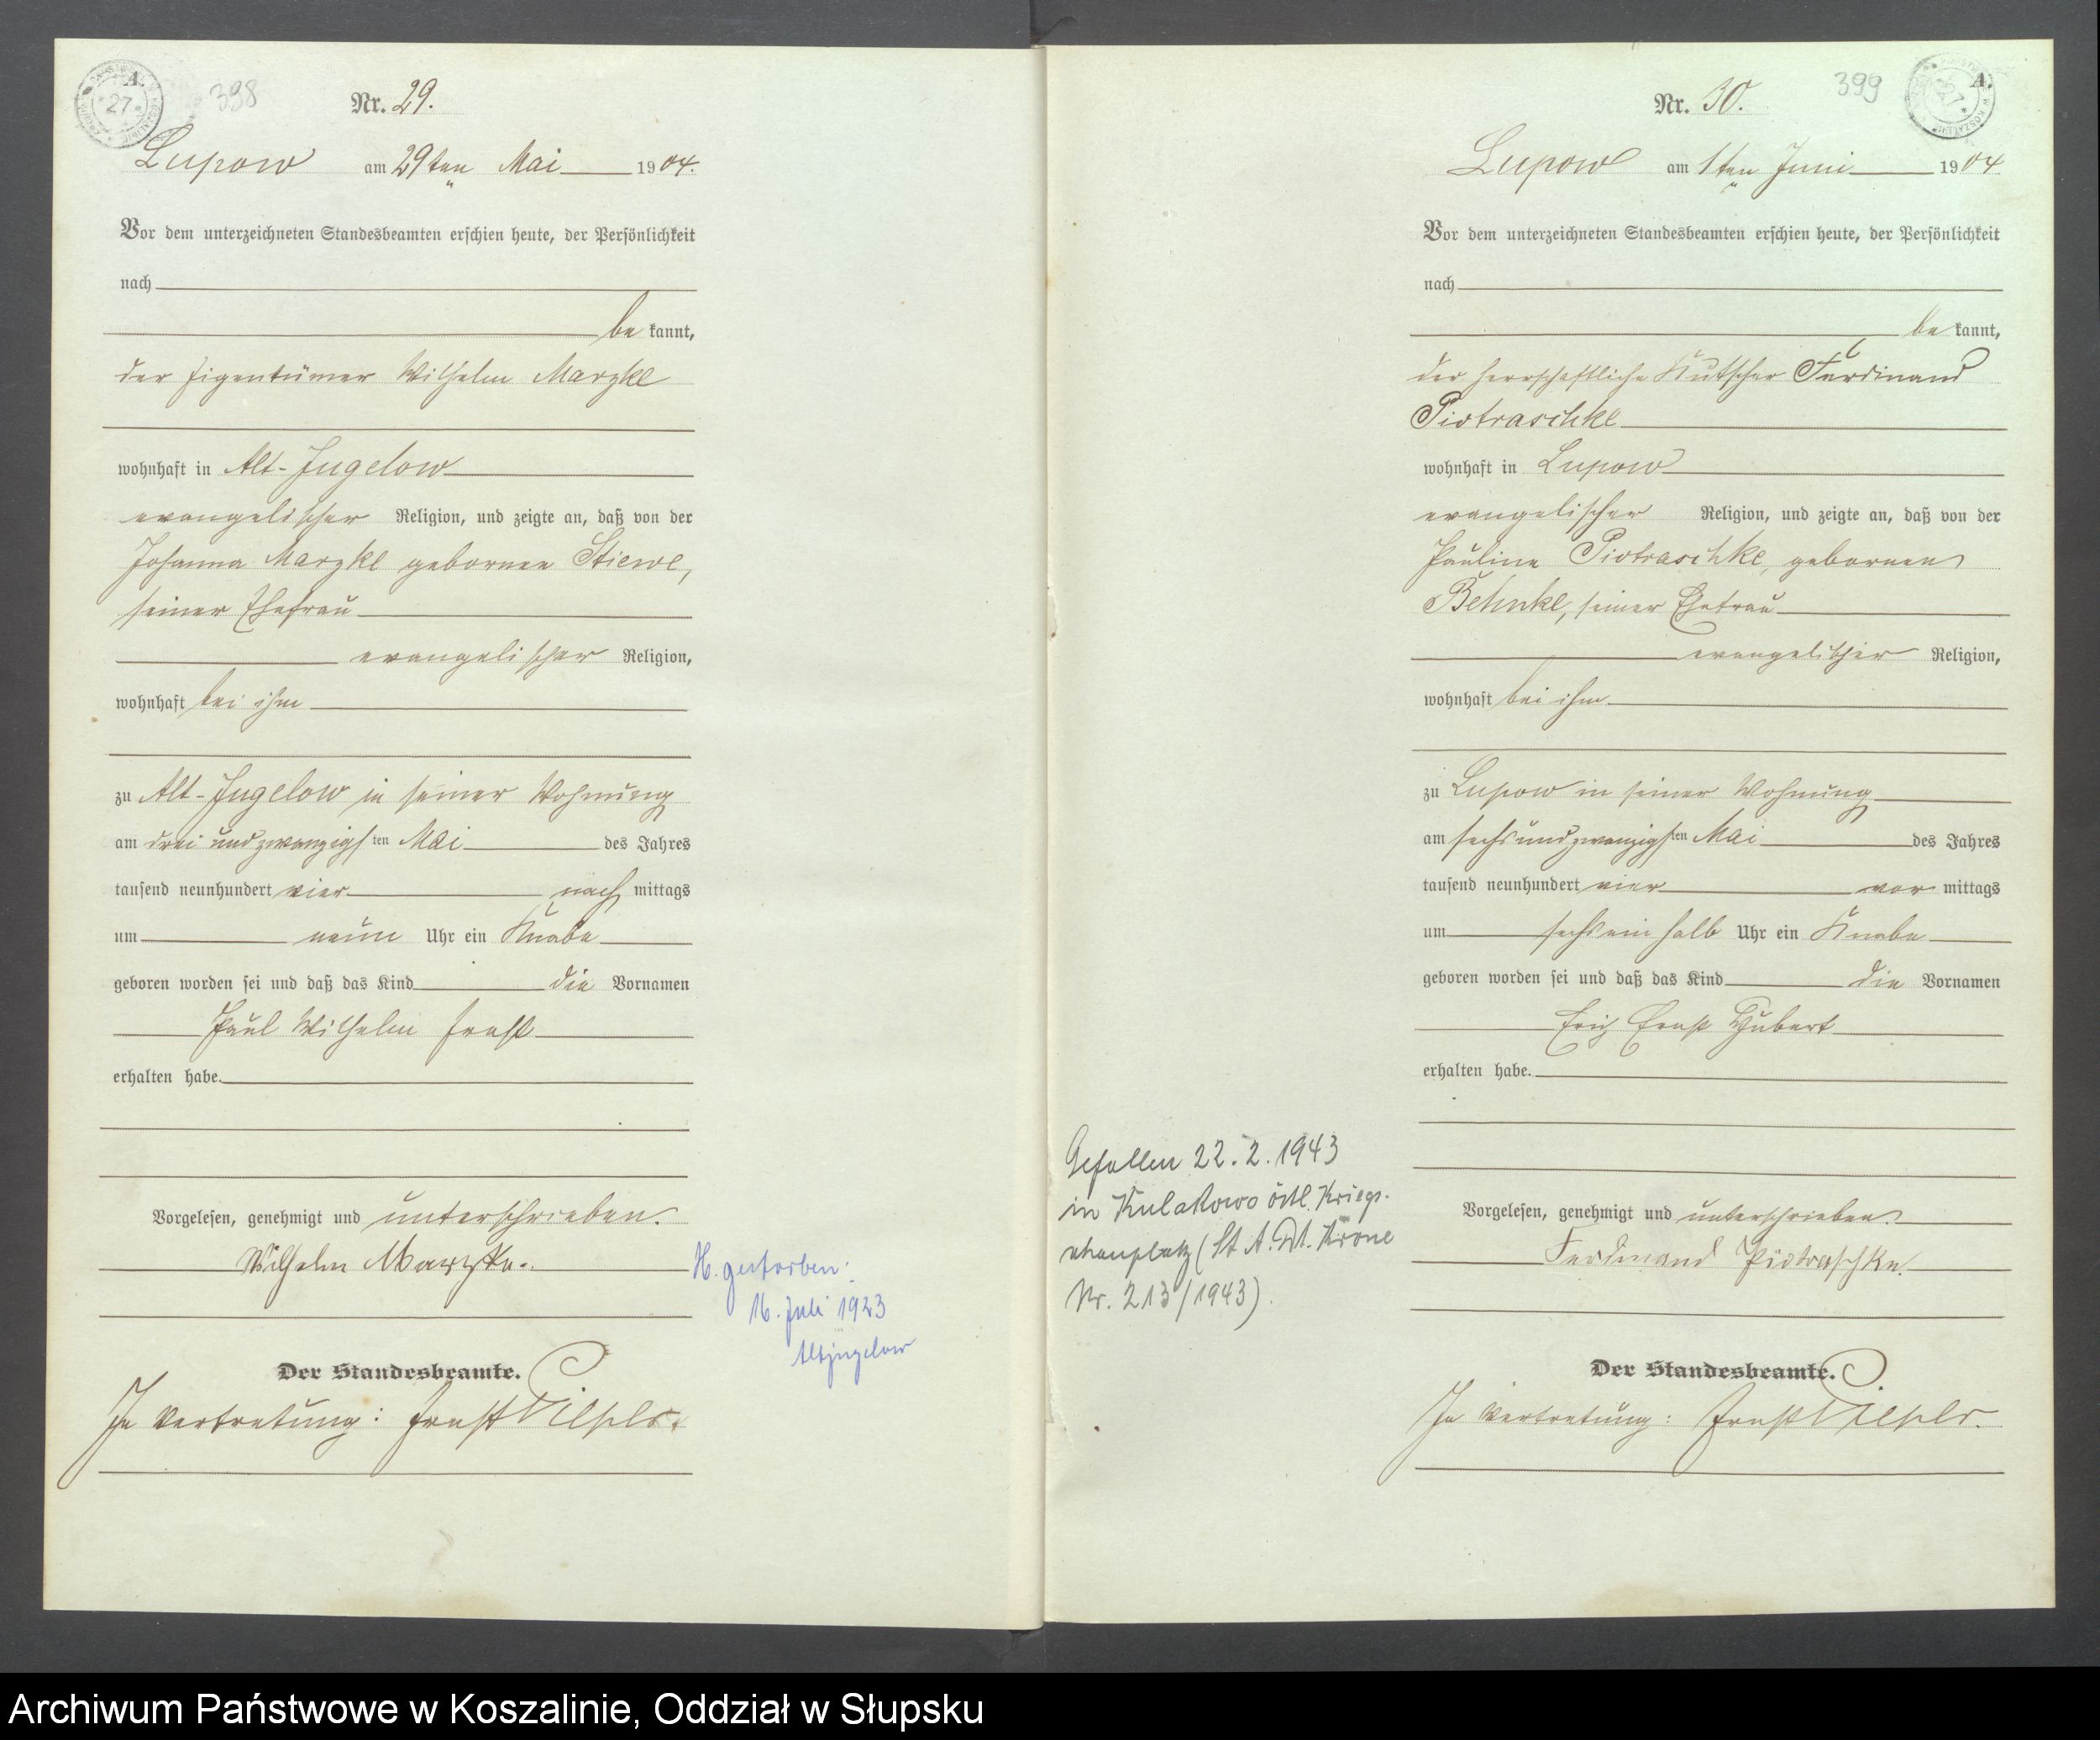 398
A.
27
Nr. 29.
Lupow am 29ten Mai 1904.
Vor dem unterzeichneten Standesbeamten erschien heute, der Persönlichkeit
nach
be kannt,
der Eigentümer Wilhelm Marzke
wohnhaft in Alt-Jugelow
evangelischer Religion, und zeigte an, daß von der
Johanna Marzke geborenen Stiewe,
seiner Ehefrau
evangelischer Religion,
wohnhaft bei ihm
zu Alt-Jugelow in seiner Wohnung
am drei und zwanzigsten Mai des Jahres
tausend neunhundert vier nach mittags
um neun Uhr ein Knabe
geboren worden sei und daß das Kind die Vornamen
Paul Wilhelm Ernst
erhalten habe.
Vorgelesen, genehmigt und unterschrieben.
Wilhelm Marzke.
H. gestorben:
16. Juli 1923
Altjugelow
Der Standesbeamte.
In Vertretung: Ernst
399
A.
27
Nr. 30.
Lupow am 1ten Juni 1904
Vor dem unterzeichneten Standesbeamten erschien heute, der Persönlichkeit
nach
be kannt,
der herrschaftliche Kutscher Ferdinand
Piotraschke
wohnhaft in Lupow
evangelischer Religion, und zeigte an, daß von der
Pauline Piotraschke, geborenen
Behnke, seiner Ehefrau
evangelischer Religion,
wohnhaft bei ihm
zu Lupow in seiner Wohnung
am sechs und zwanzigsten Mai des Jahres
tausend neunhundert vier vor mittags
um sechs ein halb Uhr ein Knabe
geboren worden sei und daß das Kind die Vornamen
Erich Ernst Hubert
erhalten habe.
Gefallen 22.2.1943
in Kulakowo östl. Kriegs-
schauplatz (St. A. Dt. Krone
Nr. 213/1943).
Vorgelesen, genehmigt und unterschrieben.
Ferdinand Piotraschke.
Der Standesbeamte.
In Vertretung: Ernst
Archiwum Państwowe w Koszalinie, Oddział w Słupsku